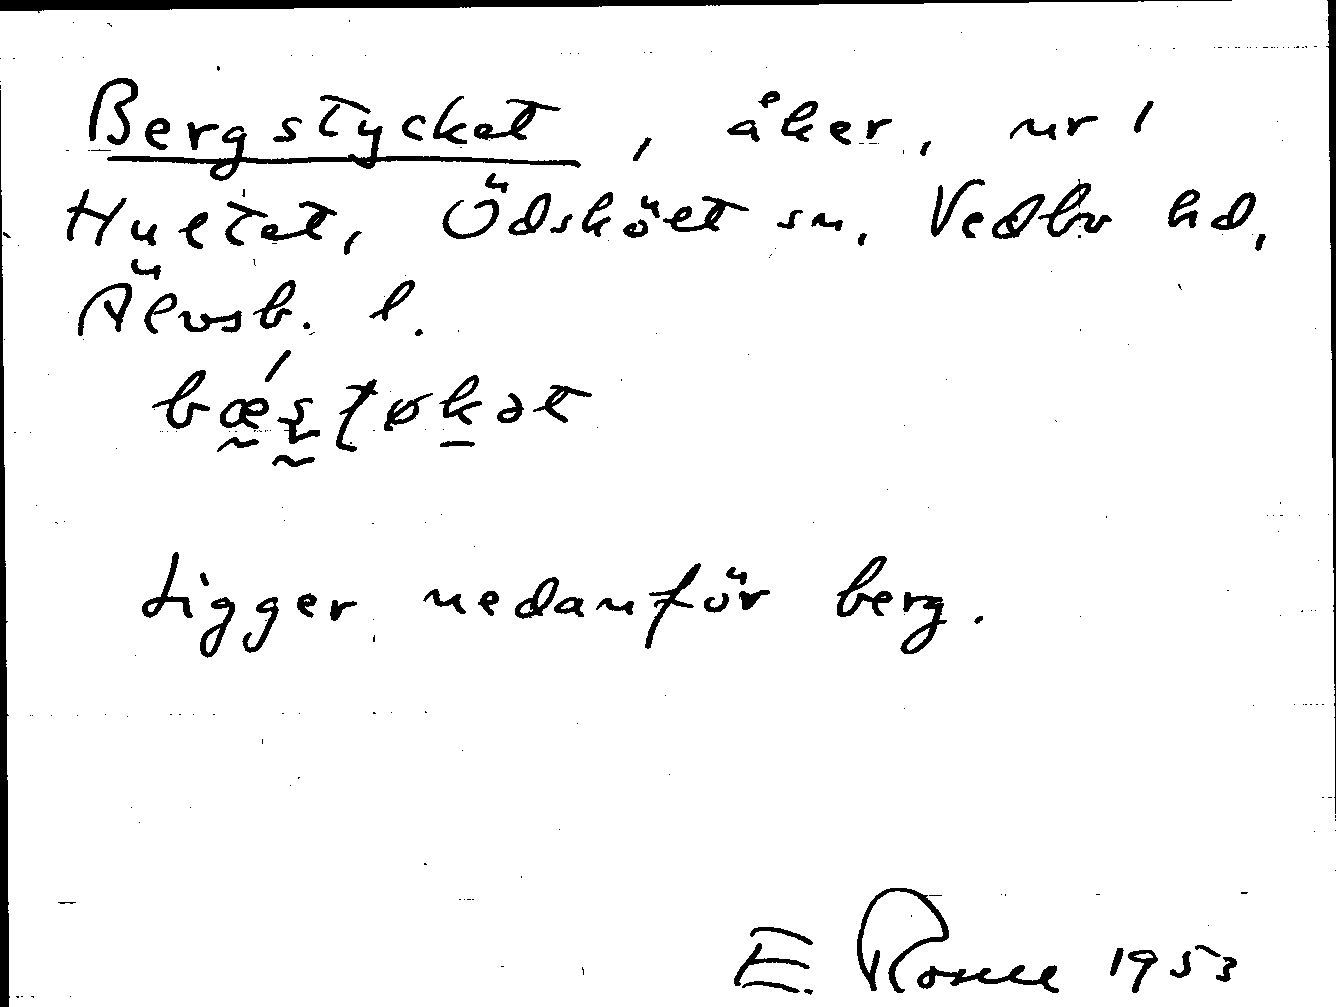 Bergstycket, åker, nr 1
Hultet, Ödsköet sn, Vedbo hd,
Älvsb. l.
bæ´ʂʈøkət
Ligger nedanför berg.
E. Rosell 1953